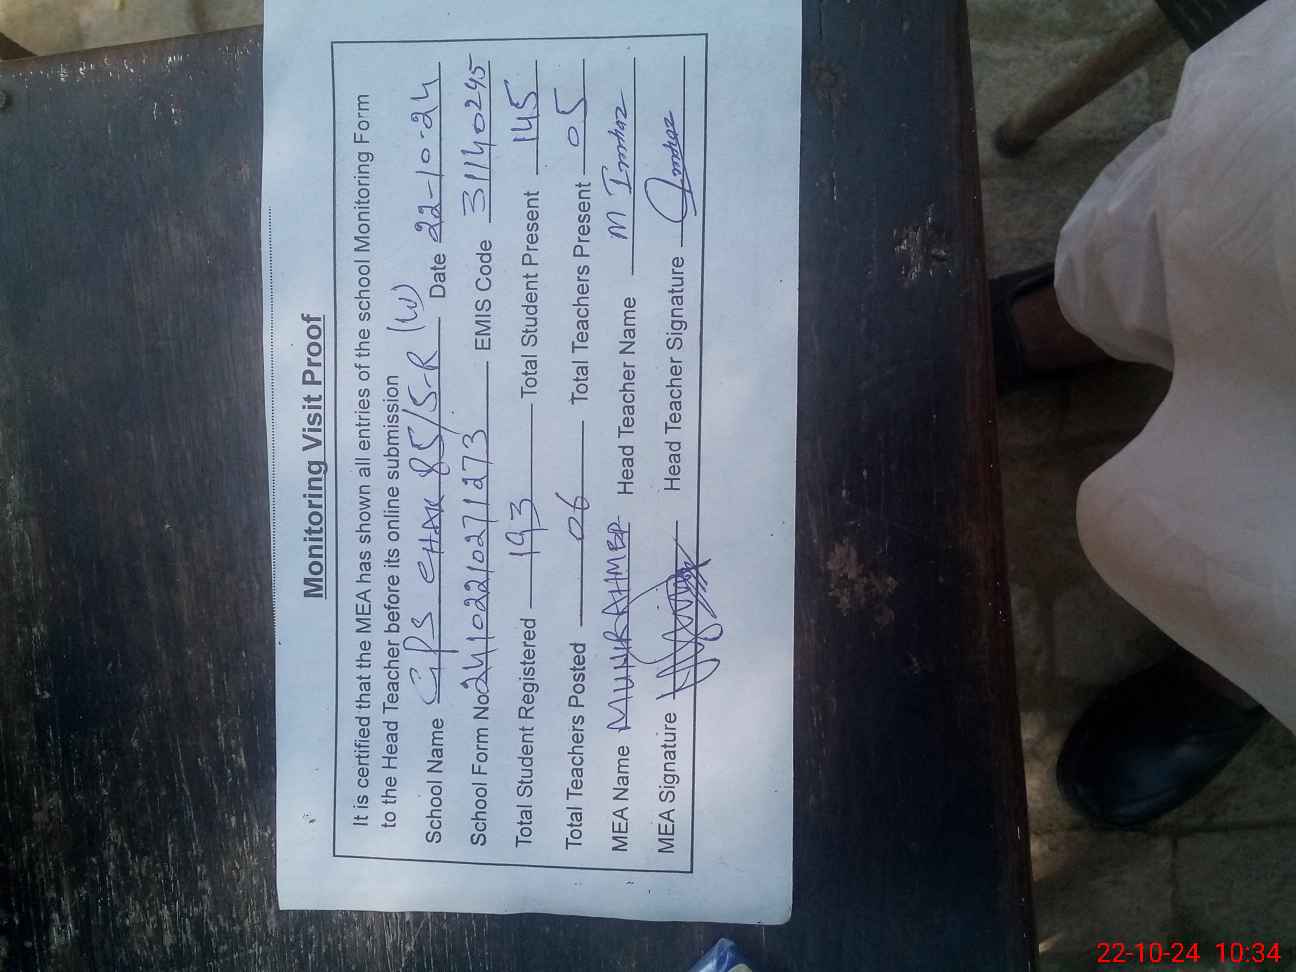 Monitoring Visit Proof
It is certified that the MEA has shown all entries of the school Monitoring Form
to the Head Teacher before its online submission
School Name GPS CHAK 85/5-R (W) Date 22-10-24
School Form No 241022102711273 EMIS Code 31140245
Total Student Registered 193 Total Student Present 145
Total Teachers Posted 06 Total Teachers Present 05
MEA Name MUNIR AHMED Head Teacher Name M Imhaz
MEA Signature Head Teacher Signature Imhaz
22-10-24 10:34